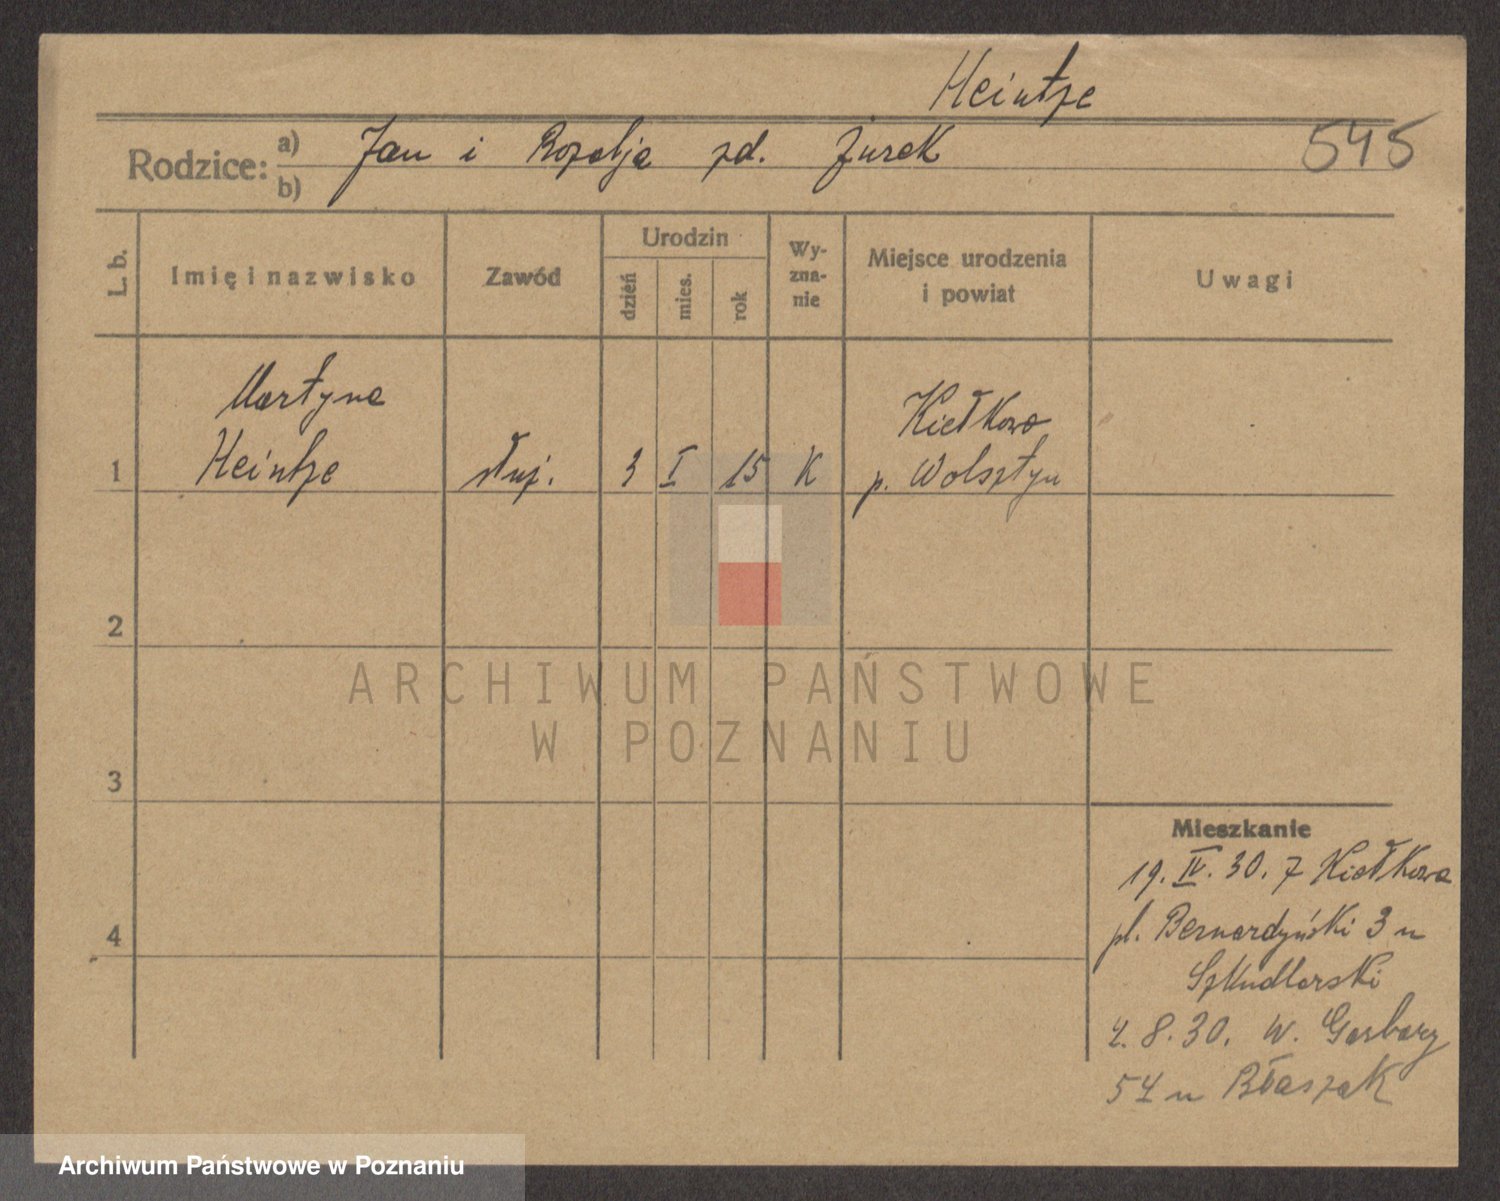 Heintze
545
Rodzice: a) Jan i Rozalja zd. Żurek
b)
L. b.
Imię i nazwisko
Zawód
Urodzin
dzień
mies.
rok
Wy-
zna-
nie
Miejsce urodzenia
i powiat
Uwagi
Martyna
Heintze
1
służ.
3 I 15 K
Kiełkowo
p. Wolsztyn
2
3
4
Mieszkanie
19. IV. 30. z Kiełkowa
pl. Bernardyński 3 u
Szkudlarski
2. 8. 30. W. Garbary
54 u Błaszak
ARCHIWUM PAŃSTWOWE
W POZNANIU
Archiwum Państwowe w Poznaniu